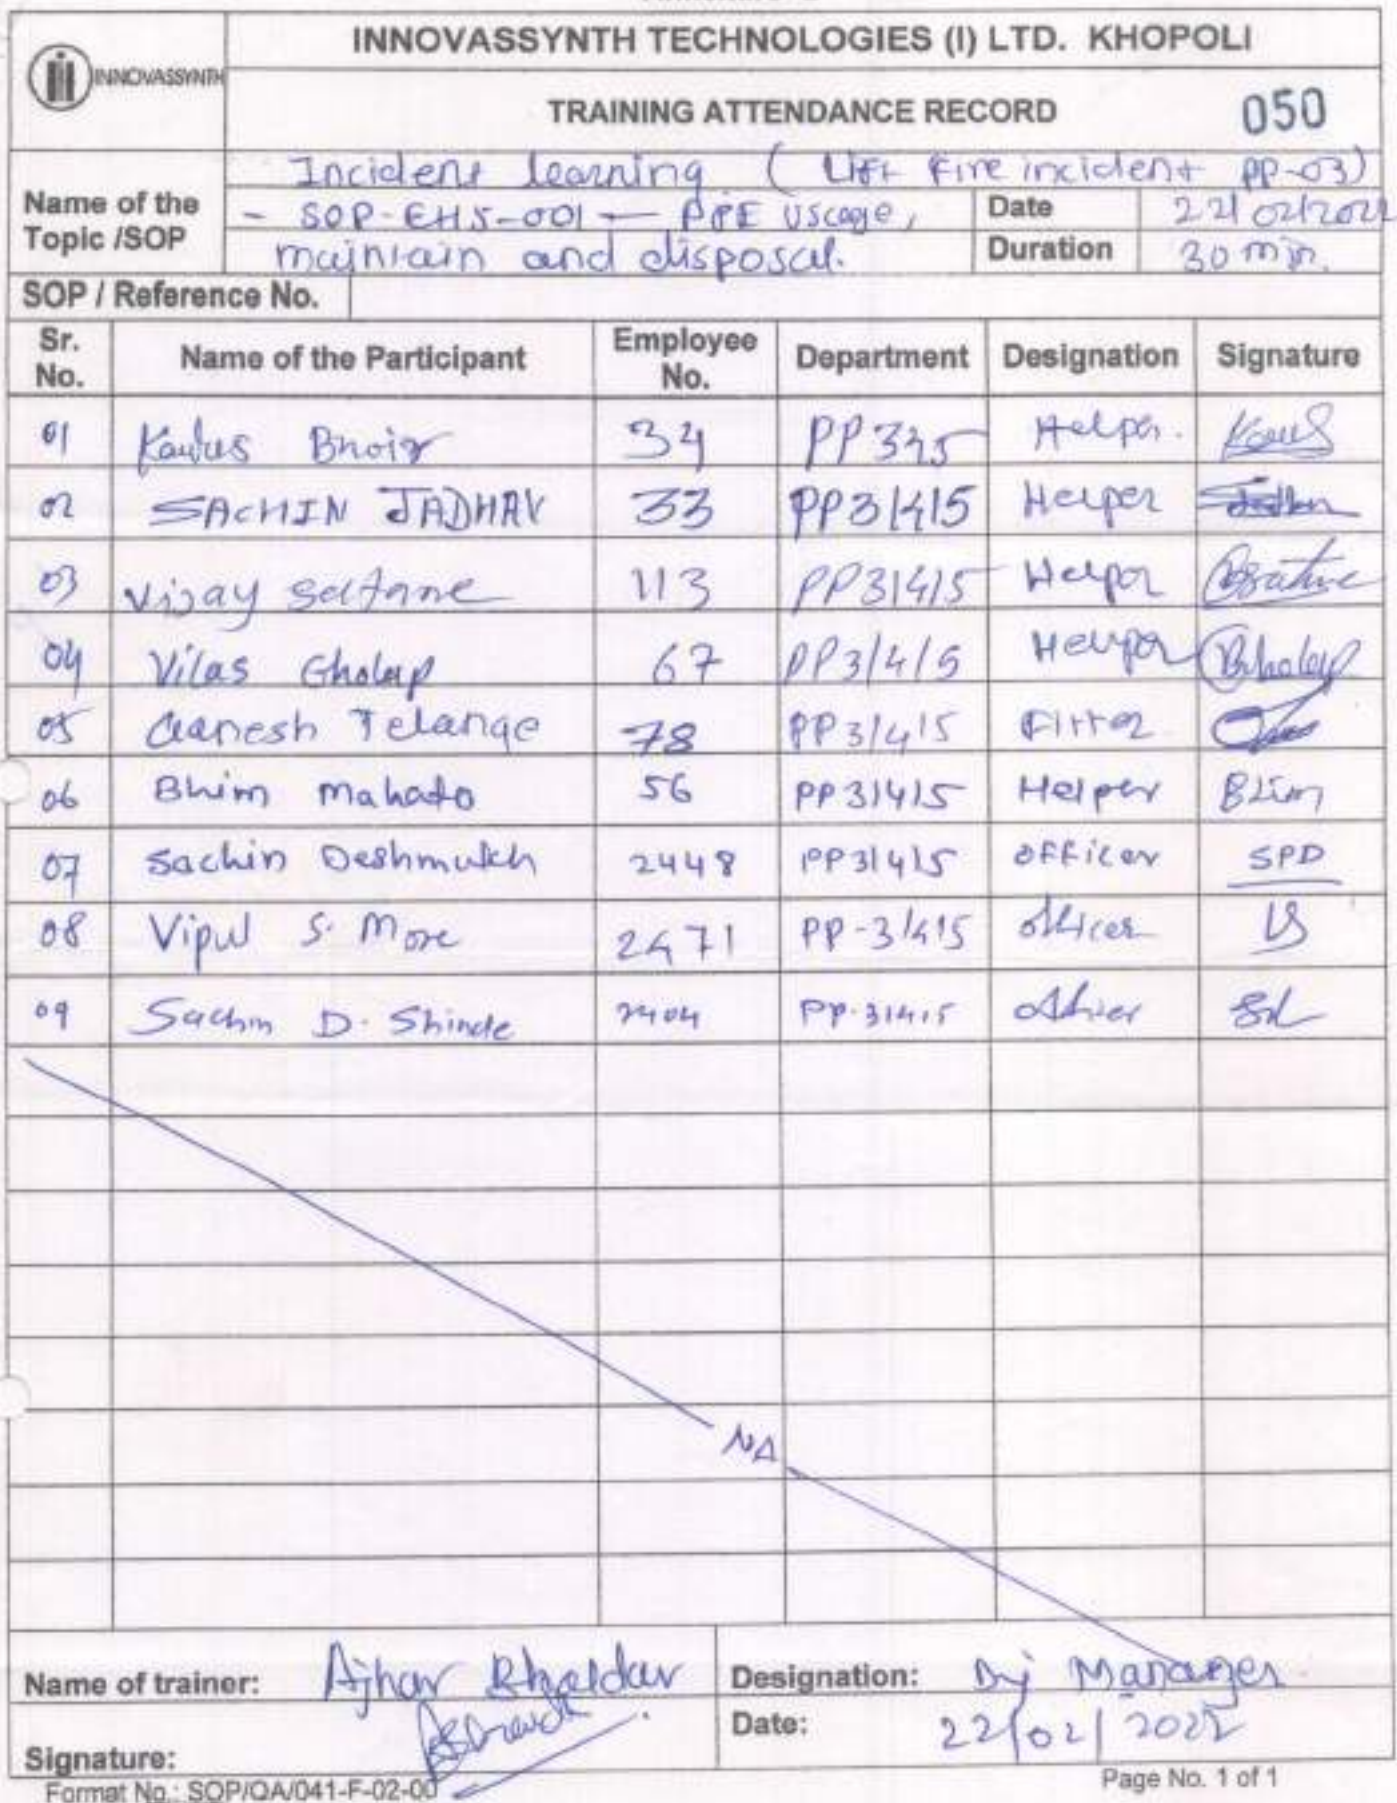 INNOVASSYNTH
INNOVASSYNTH TECHNOLOGIES (I) LTD. KHOPOLI
TRAINING ATTENDANCE RECORD 050
Name of the Topic /SOP
Incident learning ( Lift Fire incident PP-03)
- SOP-EHS-001 - PPE Uscage,
maintain and disposal.
Date 22/02/2022
Duration 30 min.
SOP / Reference No.
Sr. No. Name of the Participant Employee No. Department Designation Signature
01 Bhoir 34 PP345 Helper.
02 SACHIN JADHAV 33 PP3/4/5 Helper
03 Vijay 113 PP3/4/5 Helper
04 Vilas Gholap 67 PP3/4/5 Helper
05 Ganesh Telange 78 PP3/4/5 Fitter
06 Bhim Mahato 56 PP3/4/5 Helper Bhim
07 Sachin Deshmukh 2448 PP3/4/5 Officer SPD
08 Vipul S. More 2471 PP-3/4/5 officer
09 Sachin D. Shinde 2404 PP-3/4/5 officer
NA
Name of trainer: Ajhar Designation: Dy Manager
Signature: Date: 22/02/2022
Format No.: SOP/QA/041-F-02-00 Page No. 1 of 1